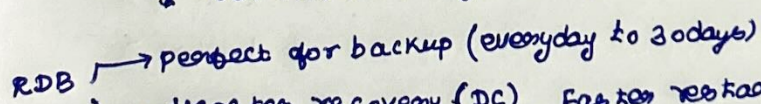 RDB → perfect for backup (everyday to 30days)
recovery (DC) Faster